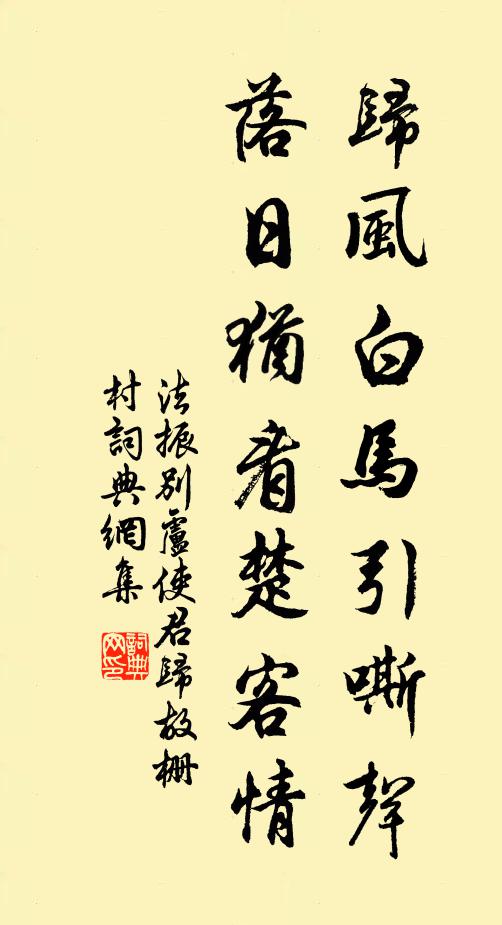 歸風白馬引嘶聲
落日猶看楚客情
法振別盧使君歸故柵
村詞典網集
詞典網印